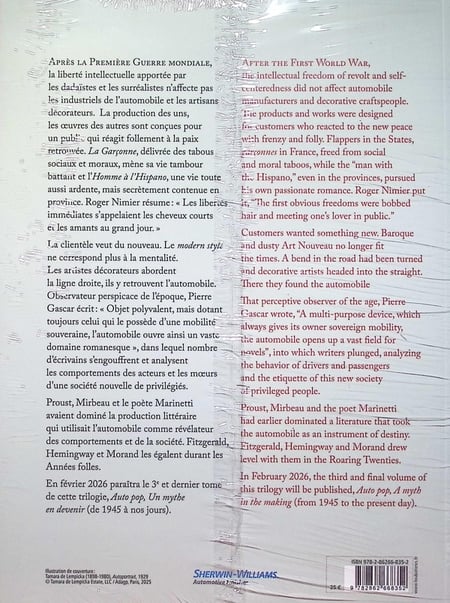 APRÈS LA PREMIÈRE GUERRE MONDIALE,
la liberté intellectuelle apportée par
les dadaïstes et les surréalistes n'affecte pas
les industriels de l'automobile et les artisans
décorateurs. La production des uns,
les œuvres des autres sont conçues pour
un public qui réagit follement à la paix
retrouvée. La Garçonne, délivrée des tabous
sociaux et moraux, mène sa vie tambour
battant et l'Homme à l'Hispano, une vie toute
aussi ardente, mais secrètement contenue en
province. Roger Nimier résume : « Les libertés
immédiates s'appelaient les cheveux courts
et les amants au grand jour. »
La clientèle veut du nouveau. Le modern style
ne correspond plus à la mentalité.
Les artistes décorateurs abordent
la ligne droite, ils y retrouvent l'automobile.
Observateur perspicace de l'époque, Pierre
Gascar écrit : « Objet polyvalent, mais dotant
toujours celui qui le possède d'une mobilité
souveraine, l'automobile ouvre ainsi un vaste
domaine romanesque », dans lequel nombre
d'écrivains s'engouffrent et analysent
les comportements des acteurs et les mœurs
d'une société nouvelle de privilégiés.
Proust, Mirbeau et le poète Marinetti
avaient dominé la production littéraire
qui utilisait l'automobile comme révélateur
des comportements et de la société. Fitzgerald,
Hemingway et Morand les égalent durant les
Années folles.
En février 2026 paraîtra le 3e et dernier tome
de cette trilogie, Auto pop, Un mythe
en devenir (de 1945 à nos jours).
AFTER THE FIRST WORLD WAR,
the intellectual freedom of revolt and self-
centeredness did not affect automobile
manufacturers and decorative craftspeople.
The products and works were designed
for customers who reacted to the new peace
with frenzy and folly. Flappers in the States,
garçonnes in France, freed from social
and moral taboos, while the "man with
the Hispano," even in the provinces, pursued
his own passionate romance. Roger Nimier put
it, "The first obvious freedoms were bobbed
hair and meeting one's lover in public."
Customers wanted something new. Baroque
and dusty Art Nouveau no longer fit
the times. A bend in the road had been turned
and decorative artists headed into the straight.
There they found the automobile
That perceptive observer of the age, Pierre
Gascar wrote, "A multi-purpose device, which
always gives its owner sovereign mobility,
the automobile opens up a vast field for
novels", into which writers plunged, analyzing
the behavior of drivers and passengers
and the etiquette of this new society
of privileged people.
Proust, Mirbeau and the poet Marinetti
had earlier dominated a literature that took
the automobile as an instrument of destiny.
Fitzgerald, Hemingway and Morand drew
level with them in the Roaring Twenties.
In February 2026, the third and final volume of
this trilogy will be published, Auto pop, A myth
in the making (from 1945 to the present day).
Illustration de couverture :
Tamara de Lempicka (1898-1980), Autoportrait, 1929
© Tamara de Lempicka Estate, LLC / Adagp, Paris, 2025
SHERWIN-WILLIAMS.
Automotive
35 €
ISBN 978-2-86266-835-2
9 782862 668352